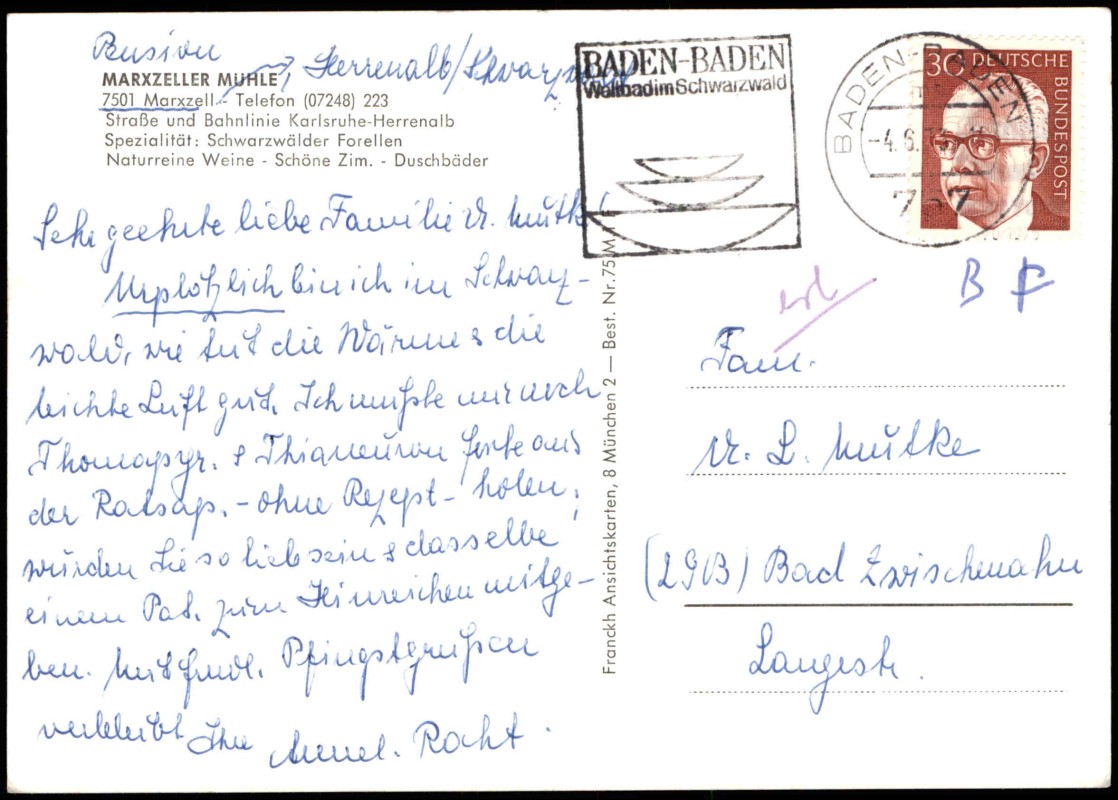 Pension
MARXZELLER MÜHLE, Herrenalb/Schwarzwald
7501 Marxzell - Telefon (07248) 223
Straße und Bahnlinie Karlsruhe-Herrenalb
Spezialität: Schwarzwälder Forellen
Naturreine Weine - Schöne Zim. - Duschbäder
Sehr geehrte liebe Familie v. Mutke!
Urplötzlich bin ich im Schwarz-
wald, wie tut die Wärme & die
leichte Luft gut. Ich mußte mir noch
Thomapyr. & forte aus
der Ratsap. - ohne Rezept - holen;
würden Sie so lieb sein & dasselbe
einem Pat. zum Einreichen mitge-
ben. Mit frdl. Pfingstgrüßen
verbleibt Ihre Annel. Racht.
Franckh Ansichtskarten, 8 München 2 — Best. Nr. 75/M
BADEN-BADEN
Weltbad im Schwarzwald
BADEN-BADEN
-4.6.
757
30 DEUTSCHE
BUNDESPOST
B F
erl
Fam.
v. L. Mutke
(2903) Bad Zwischenahn
Langestr.